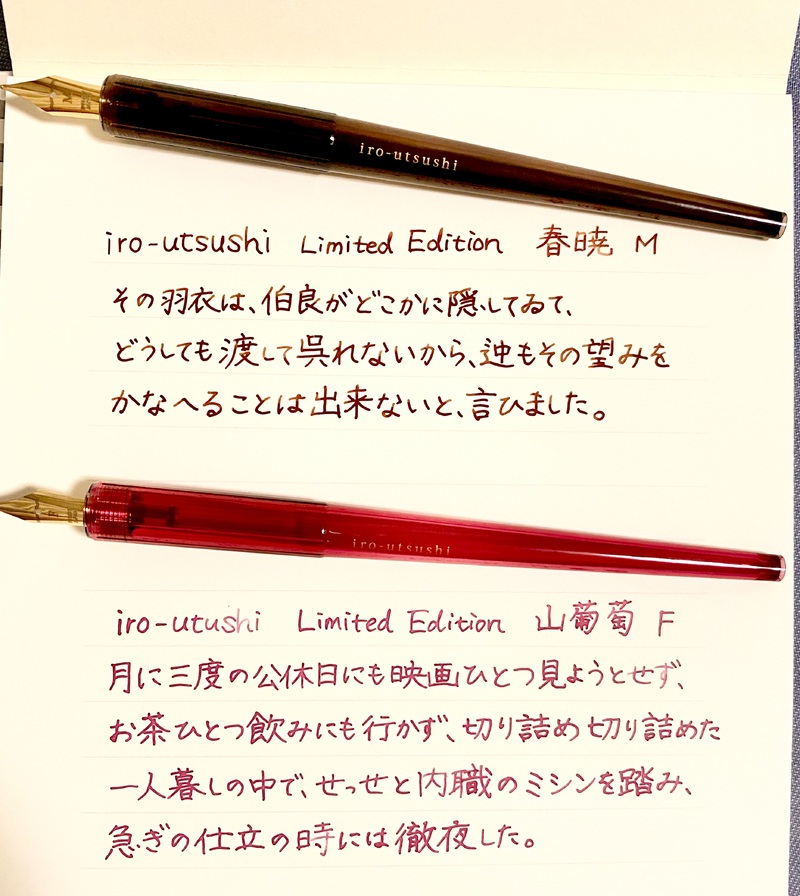 iro-utsushi
iro-utsushi Limited Edition 春暁 M
その羽衣は、伯良がどこかに隠してゐて、
どうしても渡して呉れないから、迚もその望みを
かなへることは出来ないと、言ひました。
iro-utsushi
iro-utushi Limited Edition 山葡萄 F
月に三度の公休日にも映画ひとつ見ようとせず、
お茶ひとつ飲みにも行かず、切り詰め切り詰めた
一人暮しの中で、せっせと内職のミシンを踏み、
急ぎの仕立の時には徹夜した。